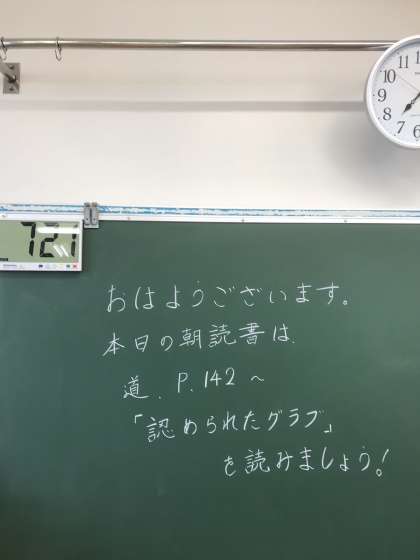 11
10
9
8
7
6
721
おはようございます。
本日の朝読書は、
道．P.142～
「認められたグラブ」
を読みましょう！